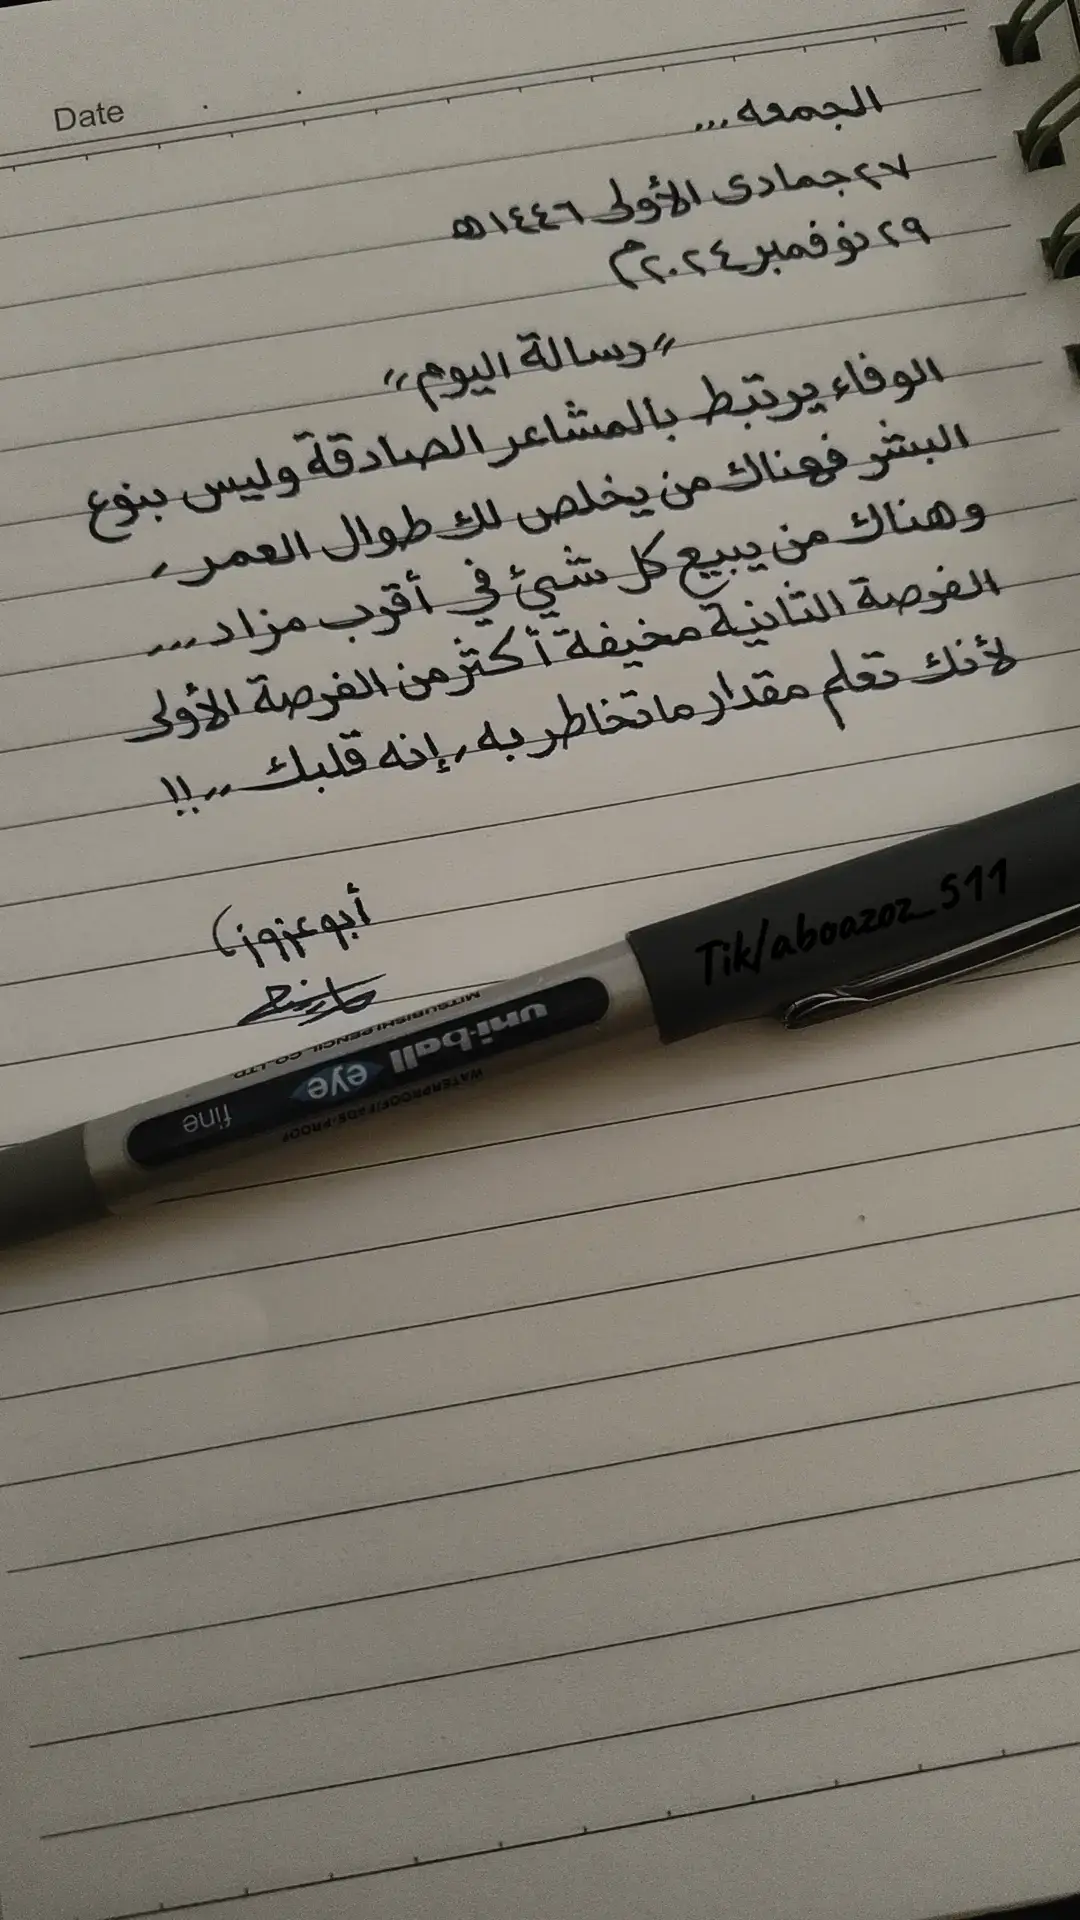 Date
الجمعه...
٢٧ جمادى الأولى ١٤٤٦هـ
٢٩ نوفمبر ٢٠٢٤م
"رسالة اليوم"
الوفاء يرتبط بالمشاعر الصادقة وليس بنوع
البشر فهناك من يخلص لك طوال العمر،
وهناك من يبيع كل شيئ في أقرب مزاد...
الفرصة الثانية مخيفة أكثر من الفرصة الأولى
لأنك تعلم مقدار ماتخاطر به، إنه قلبك..!!
أبو عزوز
Tik/aboazoz_511
MITSUBISHI PENCIL CO., LTD
uni-ball
eye
fine
WATERPROOF/FADE-PROOF